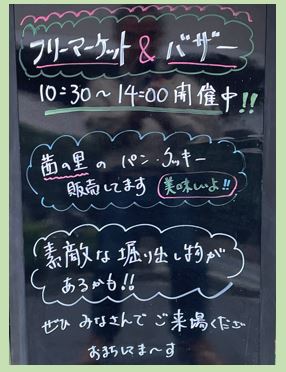 フリーマーケット & バザー
10:30～14:00開催中!!
茵の里のパン・クッキー
販売してます 美味しいよ!!
素敵な堀り出し物が
あるかも!!
ぜひみなさんでご来場くださ
おまちしてま〜す